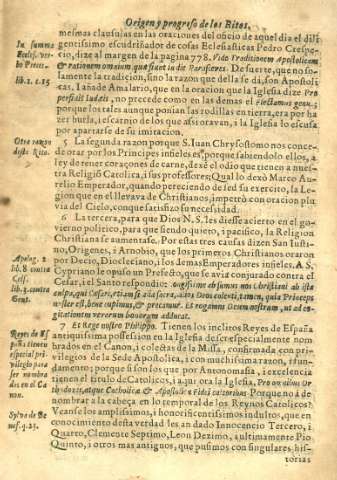 Origen y progreso de los Ritos.
mesmas clausulas en las oraciones del oficio de aquel dia el dili
gentissimo escudriñador de cosas Eclesiasticas Pedro Crespe-
cio, dize al margen de la pagina 778. Vide Traditionem Apostolicam
In summa
Ecclesi. ver-
bo Preces.
& rationem omnium quæ fiunt in die Parasceues. De suerte, que no so-
lamente la tradicion, sino la razon que della se dà, son Apostoli-
lib. 1. c. 15
cas, i añade Amalario, que en la oracion que la Iglesia dize Pro
perfidis Iudæis, no precede como en las demas el Flectamus genua;
porque los tales aunque ponian las rodillas en tierra, era por ha
zer burla, i escarnio de los que assi oravan, a la Iglesia lo escusa
por apartarse de su imitacion.
Otra razon
deste Rito.
5 La segunda razon porque S. Iuan Chrysostomo nos conce-
de orar por los Principes infieles, es porque sabiendo ellos, a
ley de tener coraçones de carne, dexè el odio que tienen a nues-
tra Religiõ Catolica, i sus professores; Qual lo dexò Marco Au-
relio Emperador, quando pereciendo de sed su exercito, la Le-
gion que en el llevava de Christianos, impetrò con oracion plu-
via del Cielo, con que satisfizo su necesidad.
6 La tercera, para que Dios N. S. les diesse acierto en el go-
vierno politico, para que siendo quieto, i pacifico, la Religion
Christiana se aumentase. Por estas tres causas dizen San Iusti-
no, Origenes, i Arnobio, que los primeros Christianos oraron
Apolog. 2
lib. 8 contra
Cels.
lib. 3. contra
Gent.
por Decio, Diocleciano, i los demas Emperadores infieles. A S.
Cypriano le opuso un Prefecto, que se avia conjurado contra el
Cesar, i el Santo respondio:
7 Et Rege nostro Philippo. Tienen los inclitos Reyes de España
Reyes de Es
paña tienen
especial pri
vilegio para
ser nombra
dos en el Ca
non.
antiquissima possession en la Iglesia de ser especialmente nom-
brados en el Canon, i colectas de la Missa, confirmada con pri-
vilegios de la Sede Apostolica, i con muchissima razon, i fun-
damento; porque si son los que por Antonomasia, i excelencia
tienen el titulo de Catolicos, i aqui ora la Iglesia, Pro omnibus Or
thodoxis, atque Catholicæ & Apostolicæ Fidei cultoribus. Porque no à de
nombrar a la cabeça en lo temporal de los Reynos Catolicos?
Sylva de Be
nef. q. 23.
Veanse los amplissimos, i honorificentissimos indultos, que en
conocimiento desta verdad les an dado Innocencio Tercero, i
Quarto, Clemente Septimo, Leon Dezimo, a ultimamente Pio
Quinto, i otros mas antiguos, que pusimos con singulares his-
torias